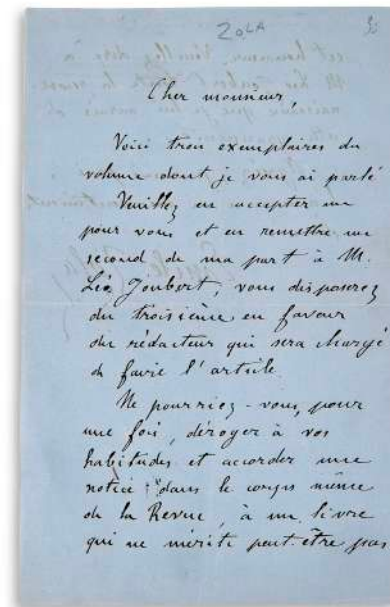 ZOLA
Cher monsieur,
Voici trois exemplaires du
volume dont je vous ai parlé
Veuillez en accepter un
pour vous et en remettre un
second de ma part à M.
Léo Joubert, vous disposerez
du troisième en faveur
du rédacteur qui sera chargé
de faire l'article.
Ne pourriez-vous, pour
une fois, déroger à vos
habitudes et accorder une
notice dans le corps même
de la Revue, à un livre
qui ne mérite peut-être pas